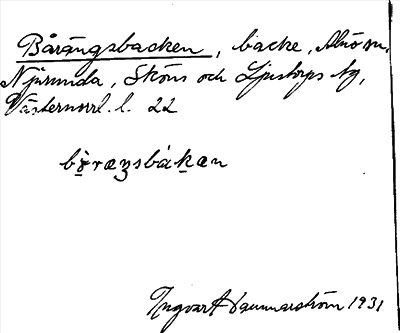 Bårängsbacken, backe, Alnö sn,
Njurunda, Sköns och Ljustorps tg,
Västernorrl. l. 22
bɤ̀ræŋsbákæn
Ingvar Hammarström 1931